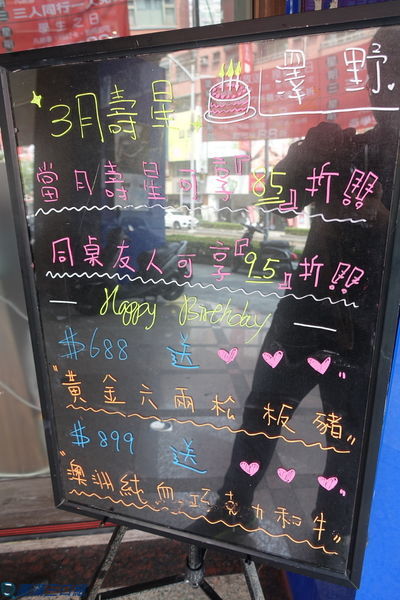 三人同行一人
澤野
3月壽星
當月壽星可享『85』折!!
同桌友人可享『95』折!!
Happy Birthday
$688 送
"黃金六兩松板豬"
$899 送
"澳洲純血巧克力和牛"